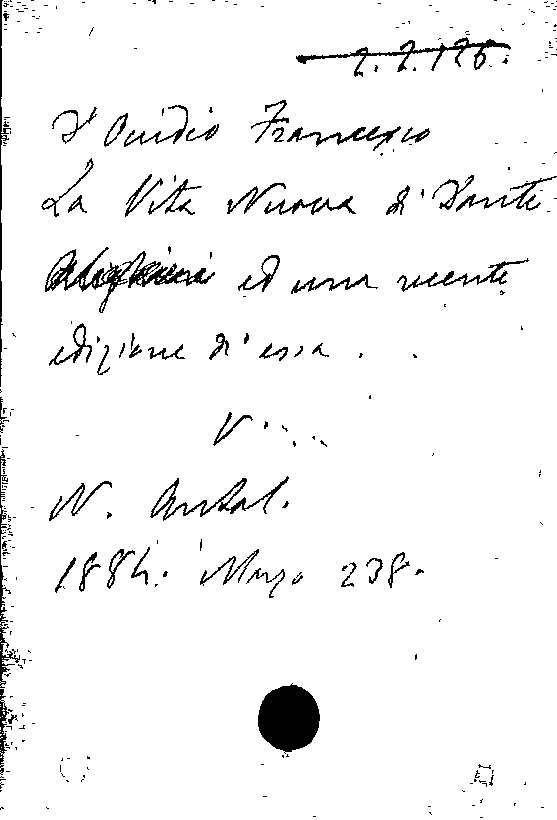 2.2.126.
D'Ovidio Francesco
La Vita Nuova di Dante
Alighieri ed una recente
edizione di essa.
V....
N. Antol.
1884. Marzo 238.